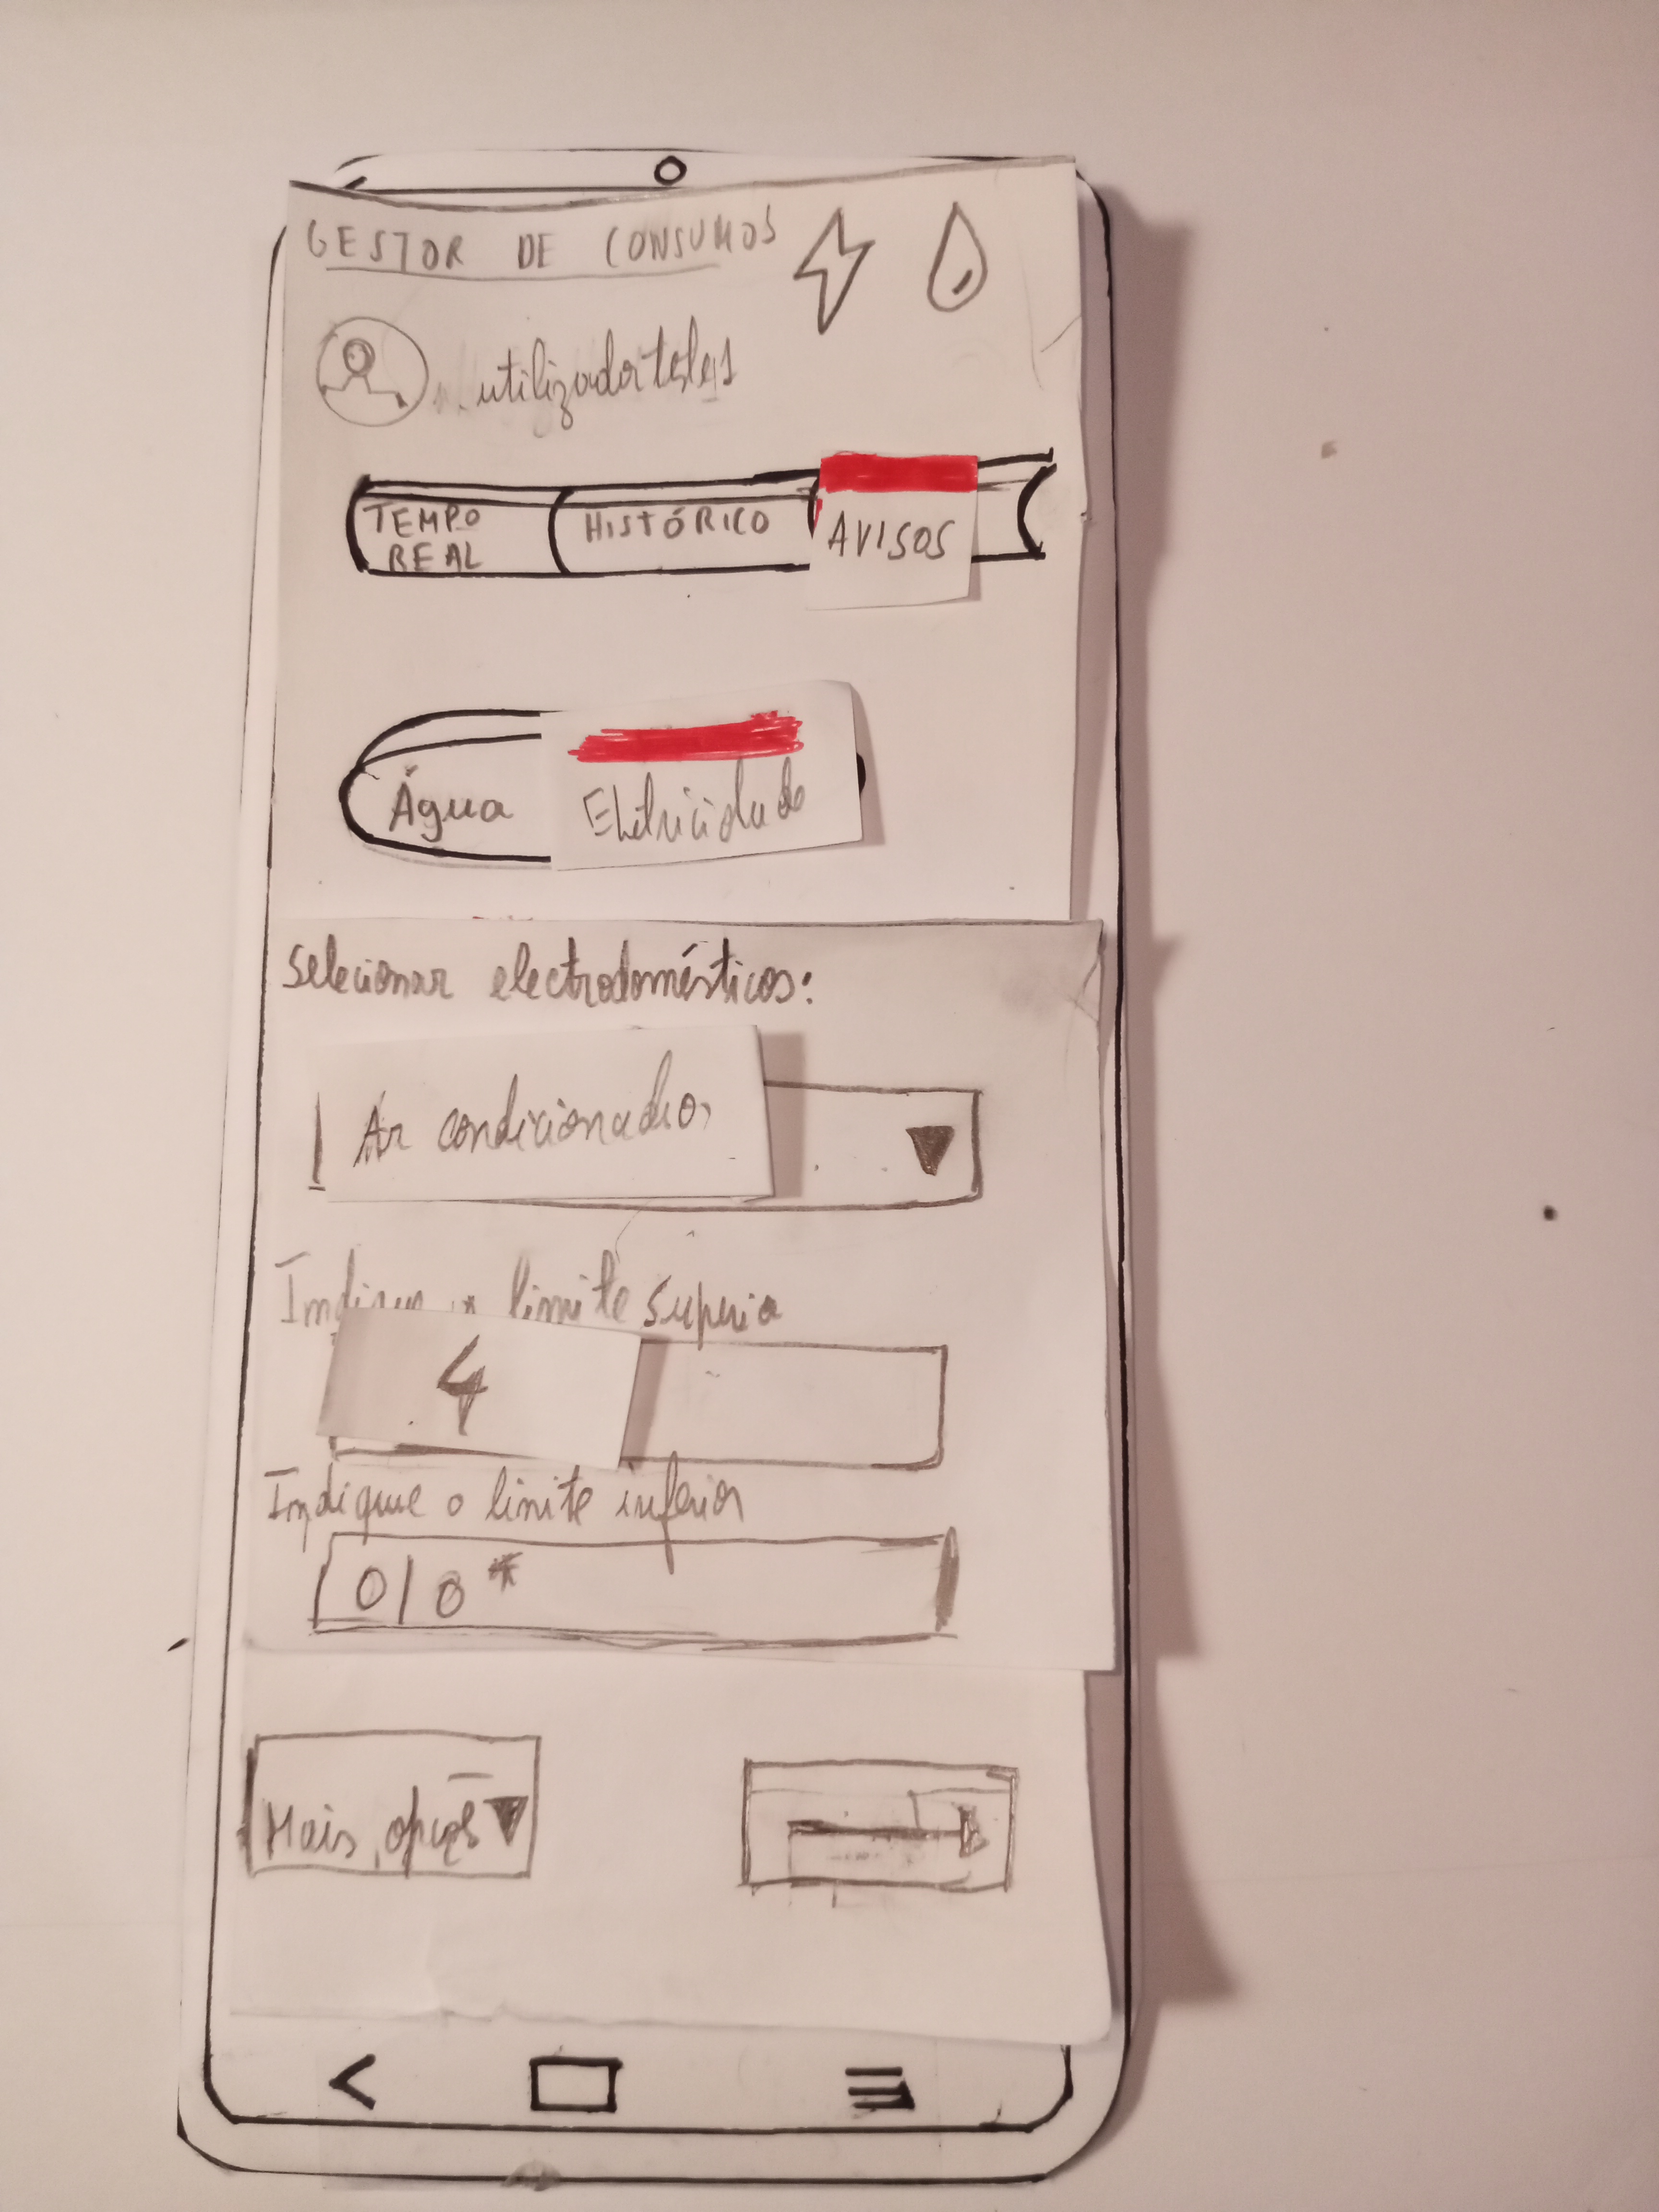 GESTOR DE CONSUMOS
utilizadorteste1
TEMPO
REAL
HISTÓRICO
AVISOS
Água
Eletricidade
Selecionar electrodomésticos:
Ar condicionado
Indique o limite superio
4
Indique o limite inferior
0/0*
Mais opções